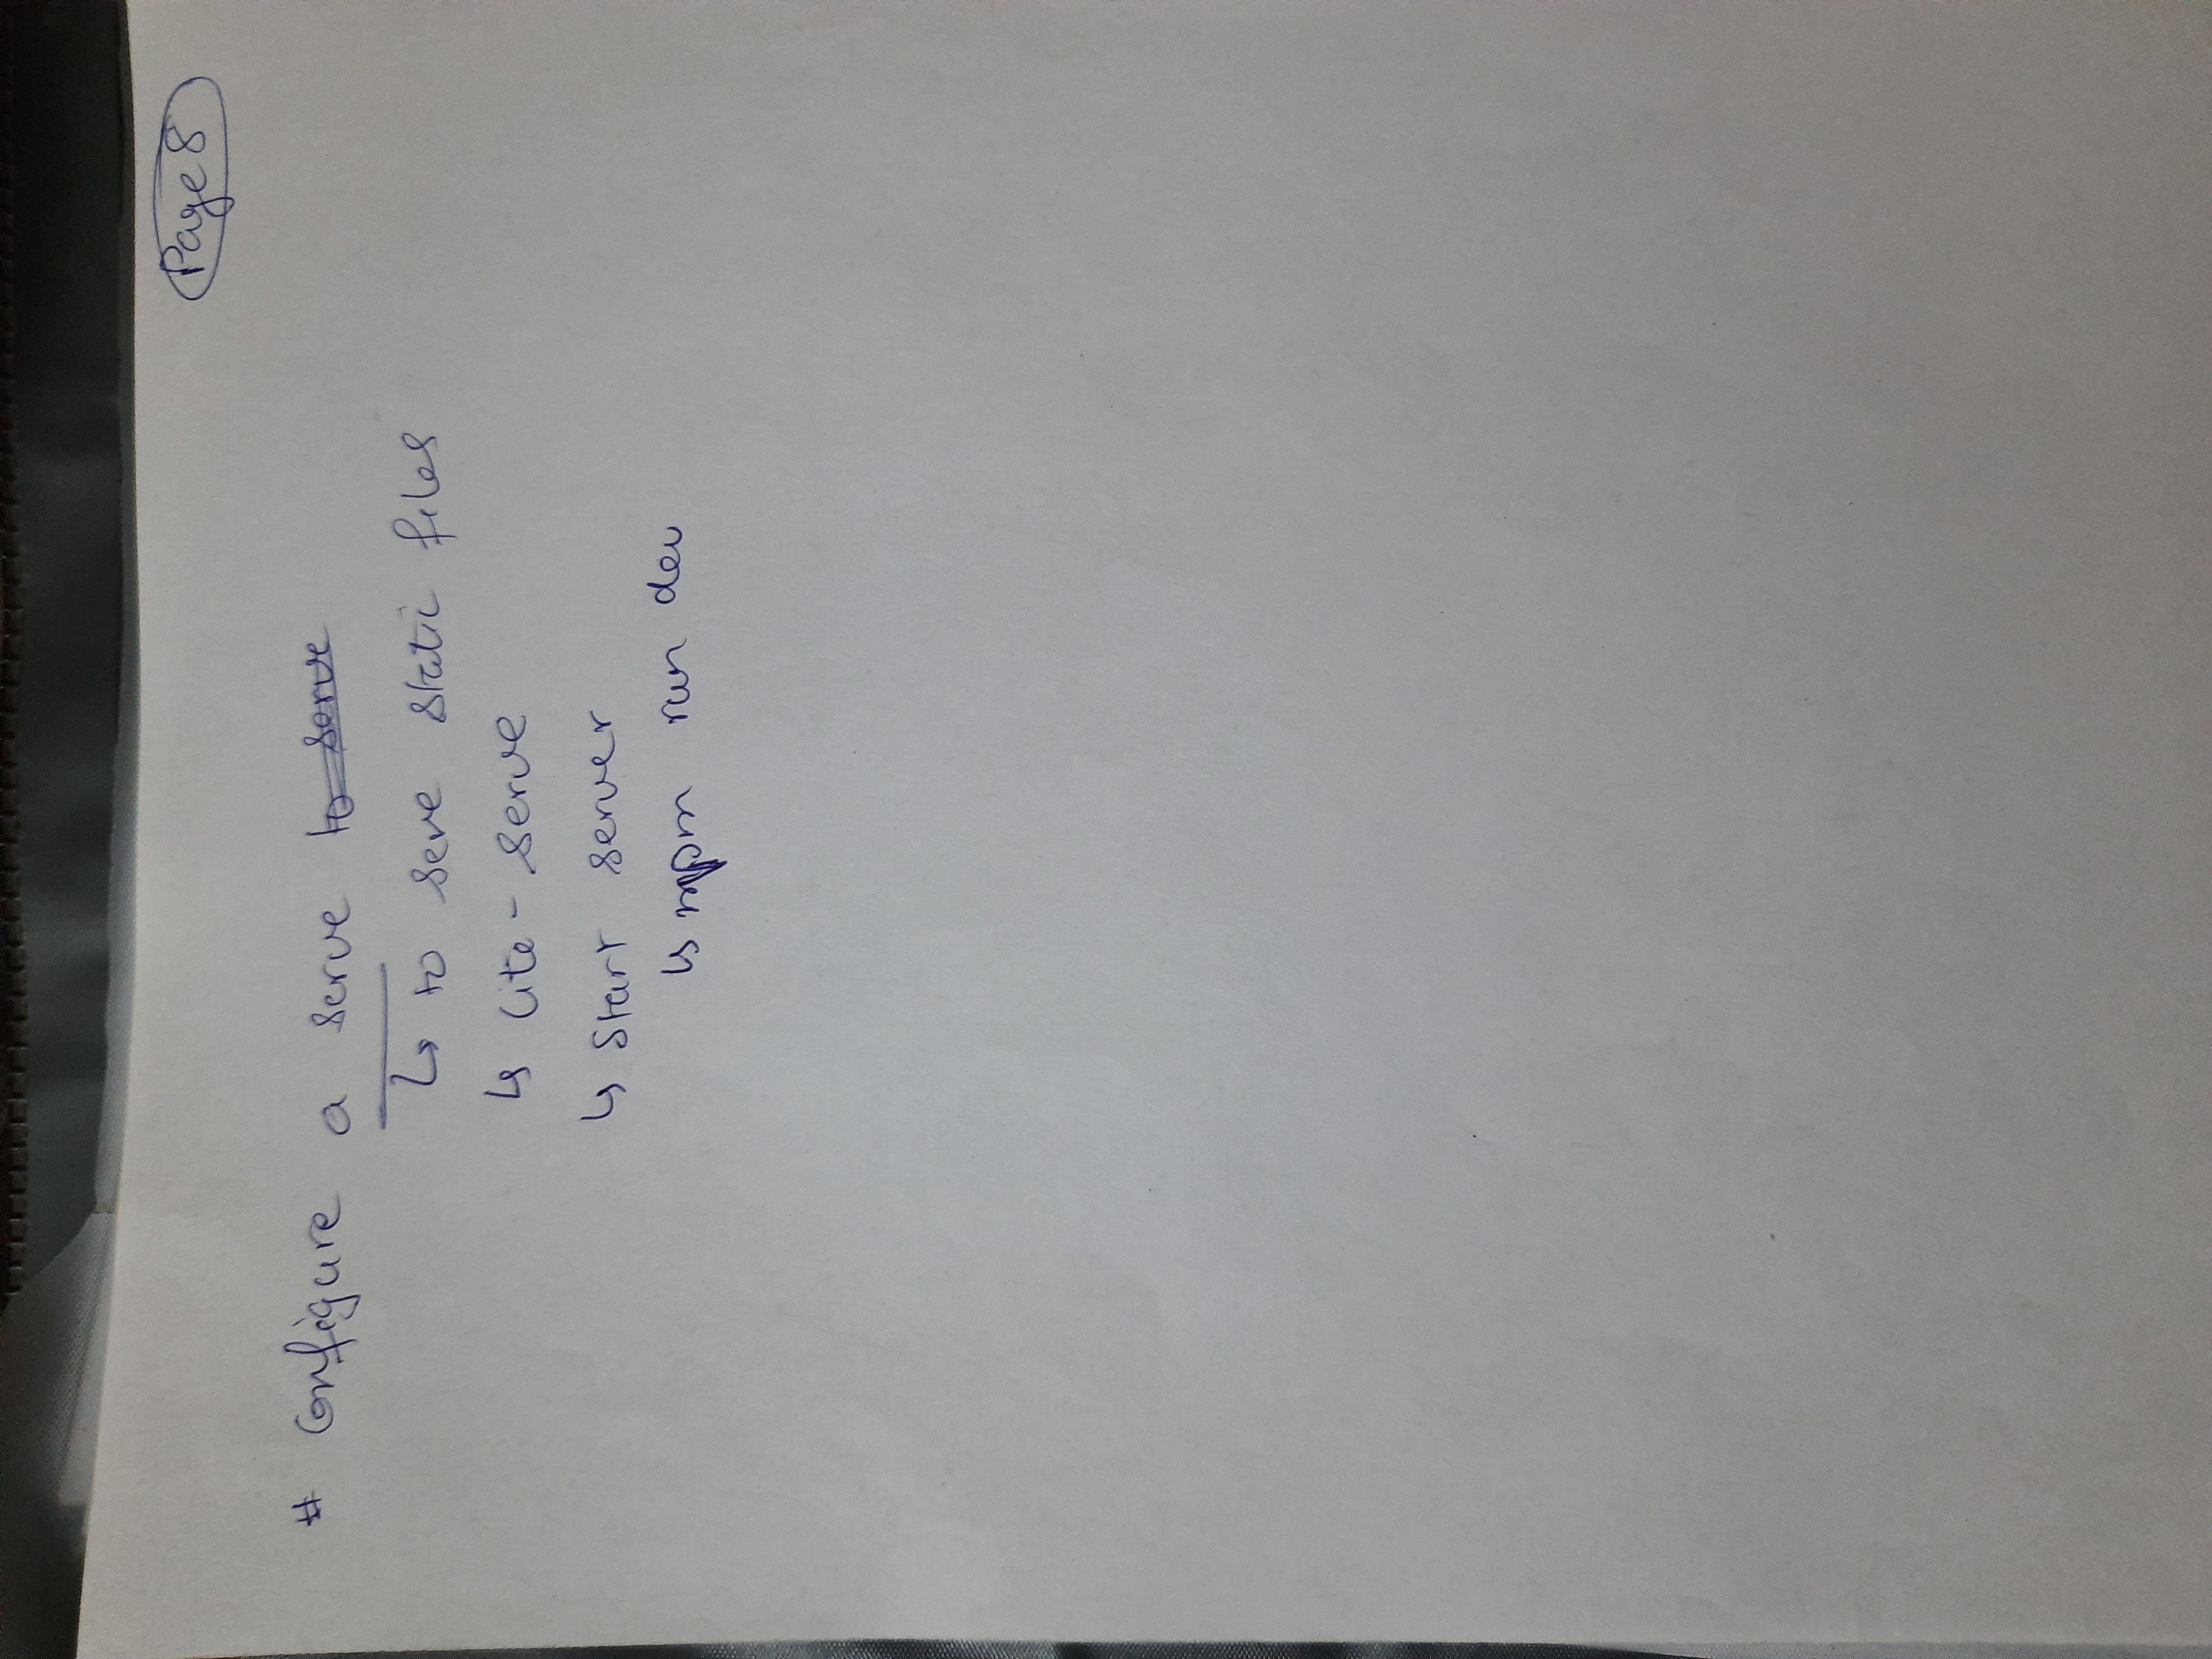 Page 8
# Configure a serve to serve
↳ to serve static files
↳ lite - serve
↳ Start server
↳ npm run dev